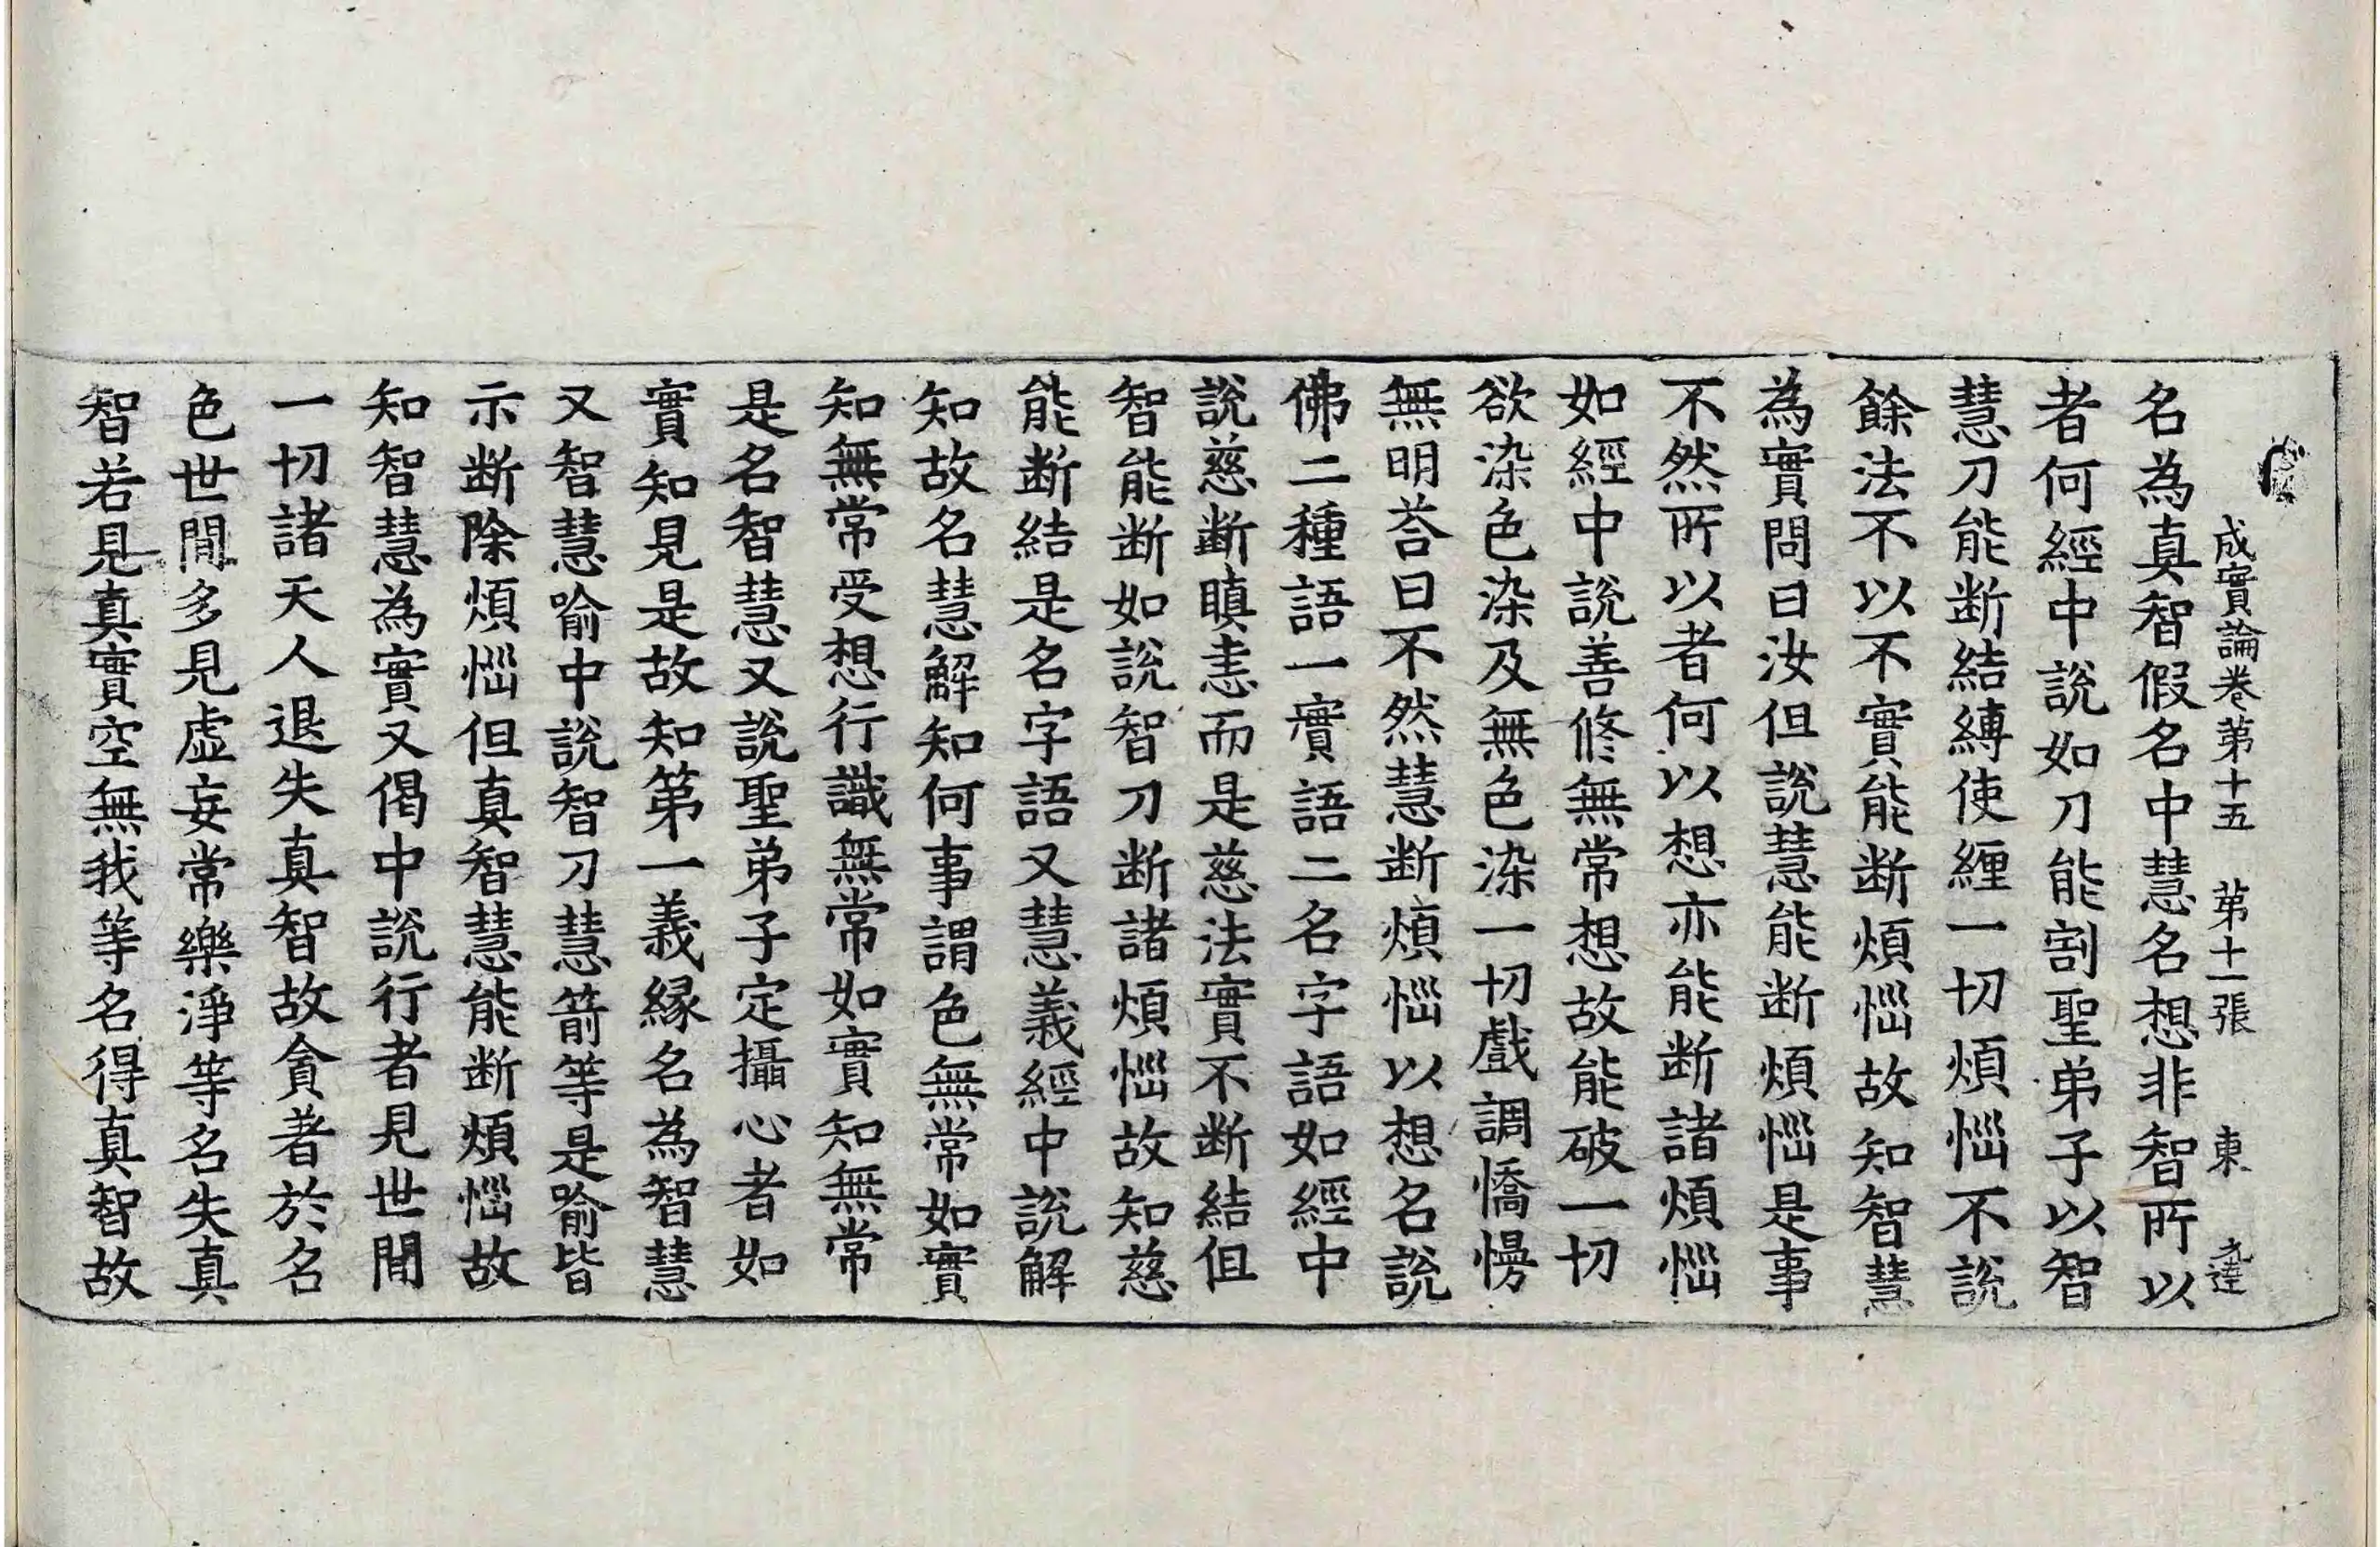 成實論卷第十五 第十一張 東
名為真智假名中慧名想非智所以
者何經中說如刀能割聖弟子以智
慧刀能断結縛使纏一切煩惱不說
餘法不以不實能断煩惱故知智慧
為實問曰汝但說慧能断煩惱是事
不然所以者何以想亦能断諸煩惱
如經中說善修無常想故能破一切
欲染色染及無色染一切戲調憍慢
無明荅曰不然慧断煩惱以想名說
佛二種語一實語二名字語如經中
說慈断瞋恚而是慈法實不断結但
智能断如說智刀断諸煩惱故知慈
能断結是名字語又慧義經中說解
知故名慧解知何事謂色無常如實
知無常受想行識無常如實知無常
是名智慧又說聖弟子定攝心者如
實知見是故知第一義緣名為智慧
又智慧喻中說智刀慧箭等是喻皆
示断除煩惱但真智慧能断煩惱故
知智慧為實又偈中說行者見世間
一切諸天人退失真智故貪著於名
色世間多見虛妄常樂淨等名失真
智若見真實空無我等名得真智故